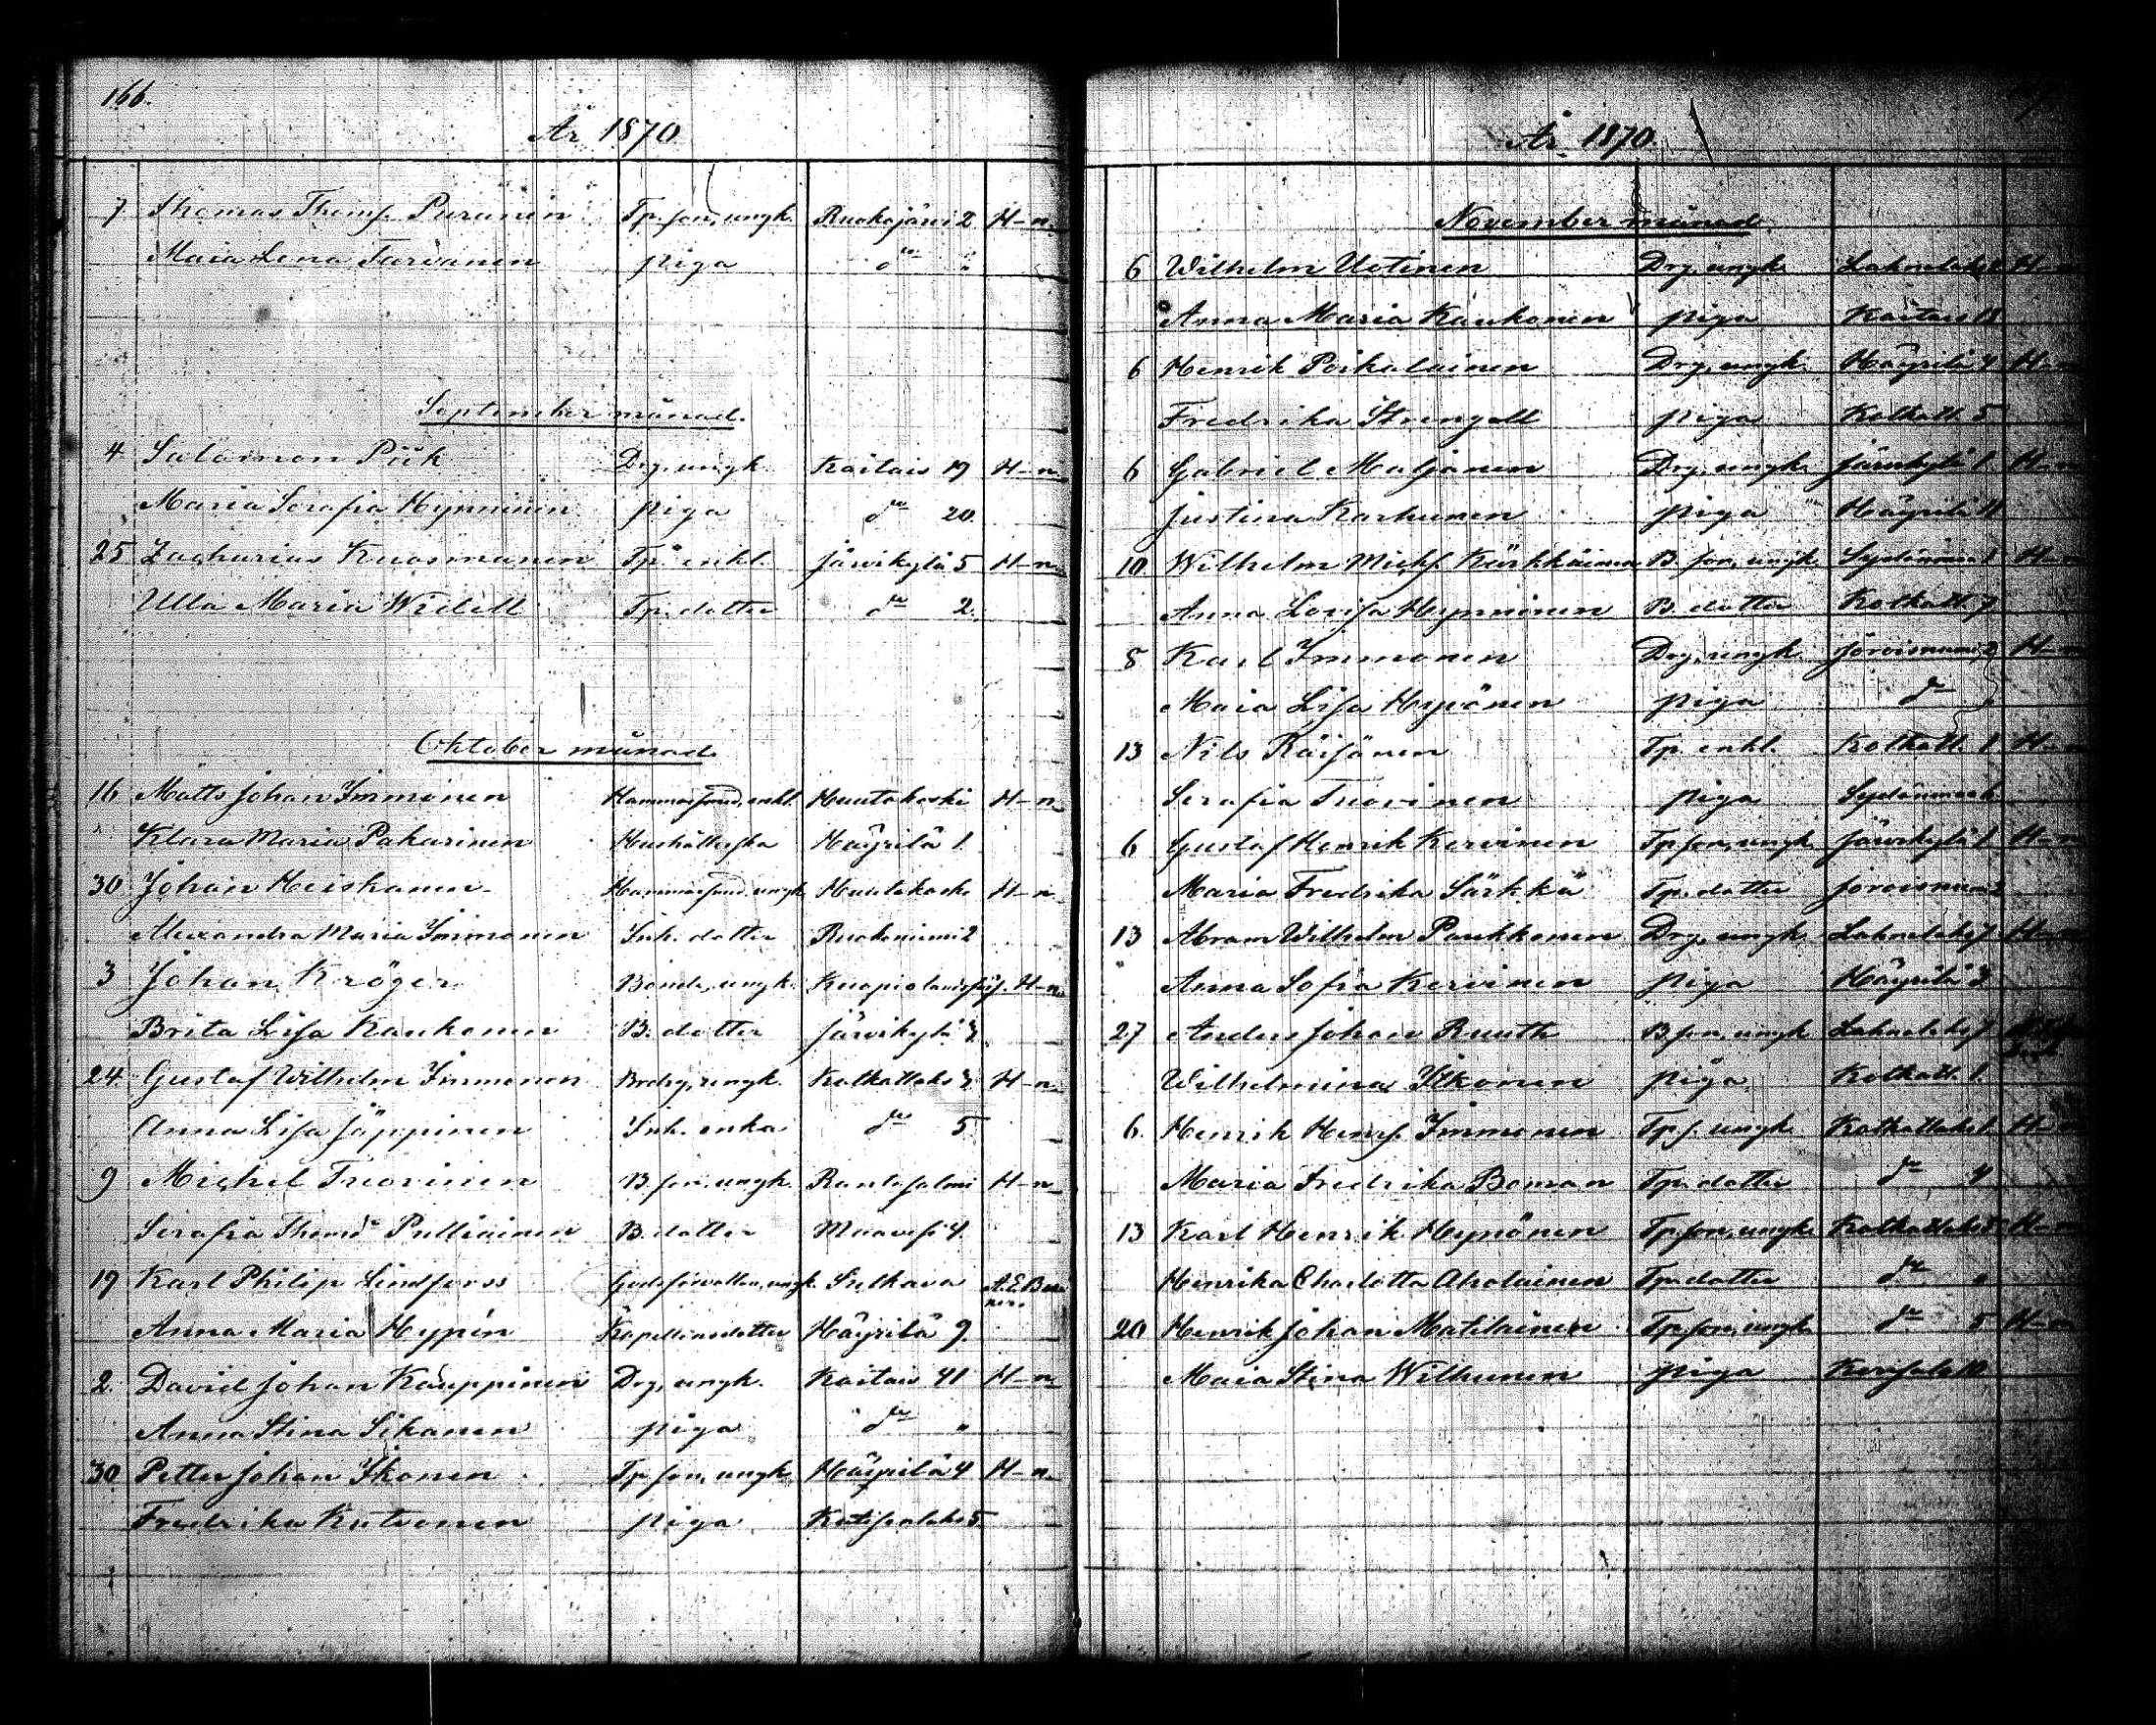 166.
År 1870
7 Thomas Thoms. Purunen Tp. son, ungk. Ruokojärvi 2 H-n.
Maria Lena Tarvanen piga do "
September månad.
4 Salomon Piik Drg, ungk Kaitais 19 H-n
Maria Serafia Hynninen piga do 20.
25 Zacharias Kuosmanen Tp. enkl. Järvikylä 5 H-n
Ulla Maria Widell Tp. dotter do 2.
Oktober månad.
16 Matts Johan Immonen Hammarsmed, enkl. Huutokoski H-n
Klara Maria Pakarinen Hushållerska Häyrilä 1
30 Johan Heiskanen Hammarsmed, ungk Huutokoski H-n
Alexandra Maria Immonen Inh. dotter Ruokoniemi 2
3 Johan Kröger Bonde, ungk. Kuopio landsförs. H-n
Brita Lisa Kaukonen B. dotter Järvikylä 3
24. Gustaf Wilhelm Immonen Brdrg, ungk. Kolkonlaks 3 H-n
Anna Lisa Jäppinen Inh. enka do 5
9 Michel Tuovinen B. son, ungk. Rantasalmi H-n
Serafia Thoms dr Pulliainen B. dotter Maavesi 4
19 Karl Philip Lindforss Godsförvaltare, ungk. Sulkava
Anna Maria Hypén Kapellansdotter Häyrilä 9.
2. David Johan Kauppinen Drg, ungk. Kaitais 41 H-n
Anna Stina Sikanen piga do "
30 Petter Johan Ikonen Tp. son, ungk Häyrilä 4 H-n
Fredrika Kutvonen piga 5
År 1870.
November månad.
6 Wilhelm Uotinen Drg, ungk.
Anna Maria Kaukonen piga Kaitais 18
6 Henrik Poikalainen Drg, ungk. Häyrilä 4 H-n
Fredrika Strengell piga Kolkatl. 5
6 Gabriel Maljanen Drg, ungk. Järvikylä 1. H-n
Justina Karhunen piga Häyrilä 11
10 Wilhelm Michs. Kärkkäinen B. son, ungk. Sydänmaa 8 H-n
Anna Lovisa Hynninen B. dotter Kolkatl. 7
8 Karl Immonen Drg, ungk. Joroisniemi 2 H-n
Maia Lisa Hypönen piga do
13 Nils Räisänen Tp. enkl. Kolkatl. 1 H-n
Serafia Tuovinen piga Sydänmaa
6 Gustaf Henrik Kervinen Tp son, ungk. Järvikylä 1 H-n
Maria Fredrika Särkkä Tp. dotter Joroisniemi 2
13 Abram Wilhelm Paukkonen Drg, ungk Lahnalaks 7
" Anna Sofia Kervinen piga Häyrilä 3
27 Anders Johan Ruuth B. son, ungk Lahnalaks 7
Wilhelmina Itkonen piga Kolkatl. 1.
6. Henrik Henrs. Immonen Tp. s. ungk. Kolkatlaks 1. H-n
Maria Fredrika Boman Tp. dotter do 4
13 Karl Henrik Hypönen Tp. son, ungk. Kolkatlaks H-n
Henrika Charlotta Aholainen Tp. dotter do "
20 Henrik Johan Matilainen Tp. son, ungk do 5 H-n
Maia Stina Wilhunen piga Kerisalo 10